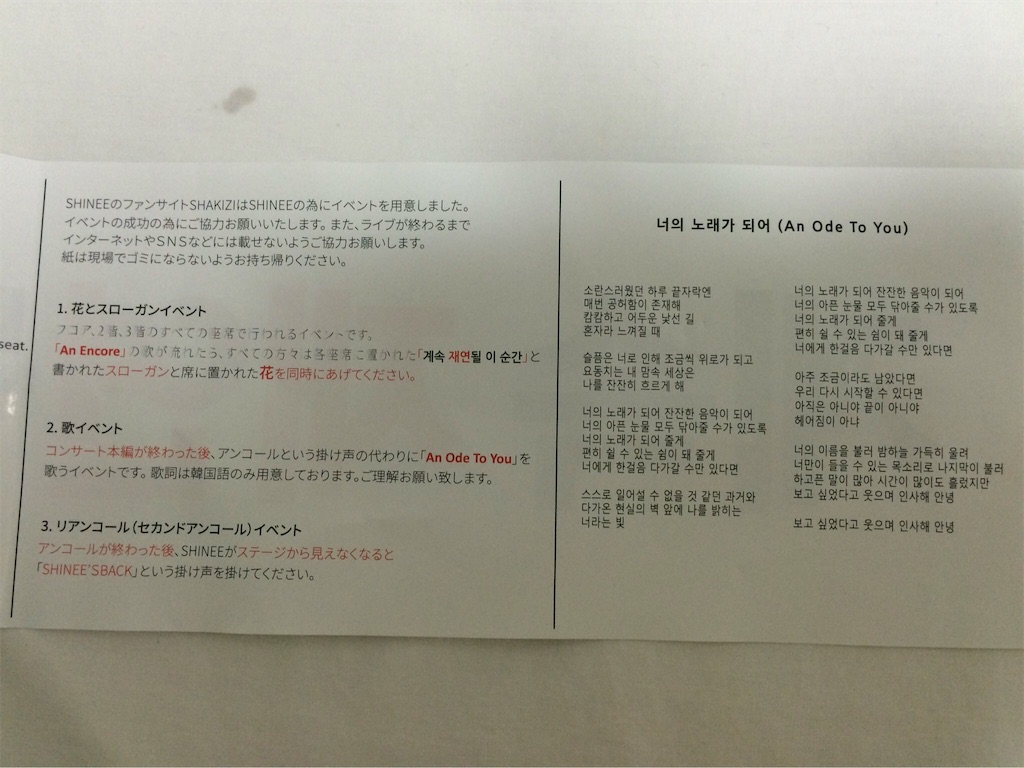 seat.
SHINEEのファンサイトSHAKIZIはSHINEEの為にイベントを用意しました。
イベントの成功の為にご協力お願いいたします。また、ライブが終わるまで
インターネットやSNSなどには載せないようご協力お願いします。
紙は現場でゴミにならないようお持ち帰りください。
1. 花とスローガンイベント
フロア、2階、3階のすべての座席で行われるイベントです。
「An Encore」の歌が流れたら、すべての方々は各座席に置かれた「계속 재연될 이 순간」と
書かれたスローガンと席に置かれた花を同時にあげてください。
2. 歌イベント
コンサート本編が終わった後、アンコールという掛け声の代わりに「An Ode To You」を
歌うイベントです。歌詞は韓国語のみ用意しております。ご理解お願い致します。
3. リアンコール（セカンドアンコール）イベント
アンコールが終わった後、SHINEEがステージから見えなくなると
「SHINEE'SBACK」という掛け声を掛けてください。
너의 노래가 되어 (An Ode To You)
소란스러웠던 하루 끝자락엔
매번 공허함이 존재해
캄캄하고 어두운 낯선 길
혼자라 느껴질 때
슬픔은 너로 인해 조금씩 위로가 되고
요동치는 내 맘속 세상은
나를 잔잔히 흐르게 해
너의 노래가 되어 잔잔한 음악이 되어
너의 아픈 눈물 모두 닦아줄 수가 있도록
너의 노래가 되어 줄게
편히 쉴 수 있는 쉼이 돼 줄게
너에게 한걸음 다가갈 수만 있다면
스스로 일어설 수 없을 것 같던 과거와
다가온 현실의 벽 앞에 나를 밝히는
너라는 빛
너의 노래가 되어 잔잔한 음악이 되어
너의 아픈 눈물 모두 닦아줄 수가 있도록
너의 노래가 되어 줄게
편히 쉴 수 있는 쉼이 돼 줄게
너에게 한걸음 다가갈 수만 있다면
아주 조금이라도 남았다면
우리 다시 시작할 수 있다면
아직은 아니야 끝이 아니야
헤어짐이 아냐
너의 이름을 불러 밤하늘 가득히 울려
너만이 들을 수 있는 목소리로 나지막이 불러
하고픈 말이 많아 시간이 많이도 흘렀지만
보고 싶었다고 웃으며 인사해 안녕
보고 싶었다고 웃으며 인사해 안녕